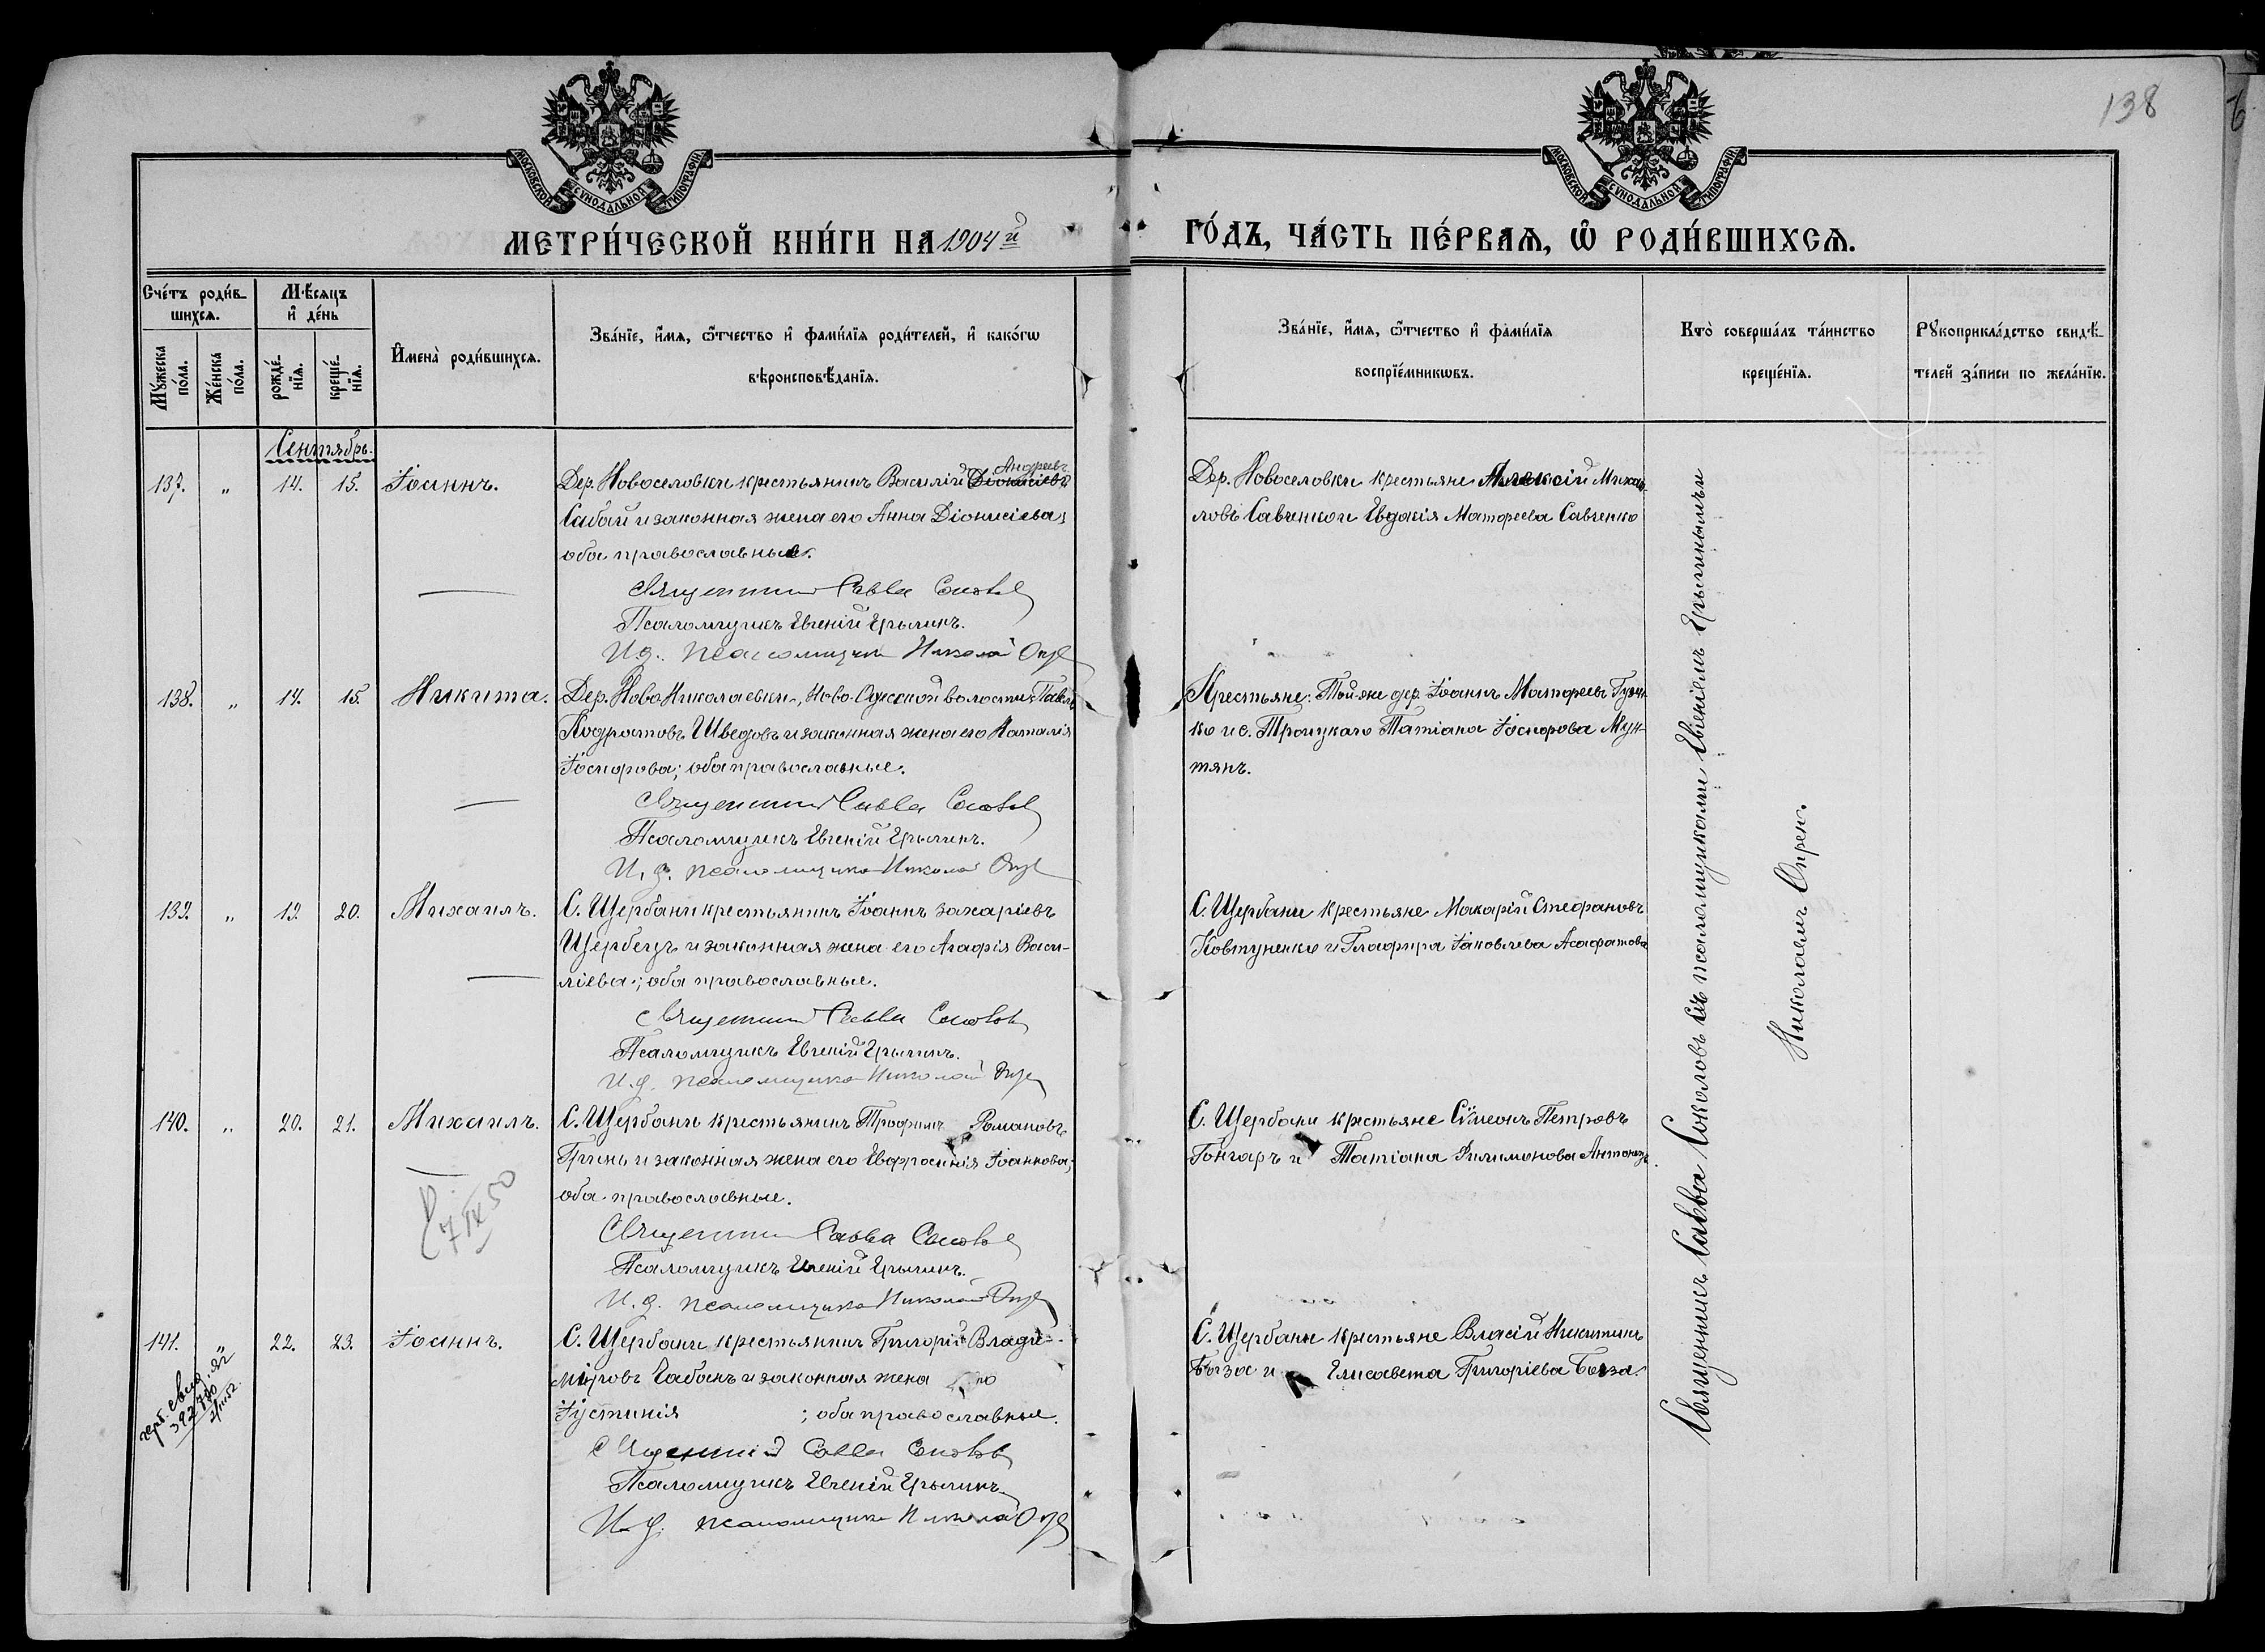 138
МОСКОВСКОЙ СѴНОДАЛЬНОЙ ТИПОГРАФІИ.
МОСКОВСКОЙ СѴНОДАЛЬНОЙ ТИПОГРАФІИ.
МЕТРИ́ЧЕСКОЙ КНИ́ГИ НА 1904й
ГО́ДЪ, ЧА́СТЬ ПЕ́РВАѦ, Ѡ҆ РОДИ́ВШИХСѦ.
Сче́тъ роди́в-
шихсѧ.
Мꙋ́жеска по́ла.
Же́нска по́ла.
Мѣ́сѧцъ
и҆ де́нь
рожде́-нїѧ.
креще́-нїѧ.
И҆мена̀ роди́вшихсѧ.
Зва́нїе, и҆́мѧ, ѻ҆́тчество и҆ фамѝлїѧ роди́телей, и҆ како́гѡ
вѣроисповѣ́данїѧ.
Зва́нїе, и҆́мѧ, ѻ҆́тчество и҆ фамѝлїѧ
воспрїе́мникѡвъ.
Кто̀ соверша́лъ та́инство
креще́нїѧ.
Рꙋкоприкла́дство свидѣ́-
телей за́писи по жела́нїю.
Сентябрь.
137. " 14. 15. Іоаннъ.
Андреевъ
Дер. Новоселовки крестьянинъ Василій Діонисіевъ
Сабай и законная жена его Анна Діонисіева;
оба православные.
Священникъ Савва Соколов
Псаломщикъ Евгеній Ерыминъ.
И.д. псаломщика Николай
Дер. Новоселовки крестьяне Алексій Михаи-
ловъ Савченко и Евдокія Матѳеева Савченко
138. " 14. 15. Никита.
Дер. Ново Николаевки, Ново-Одесской волости, Павелъ
Кодратовъ Шведовъ и законная жена его Наталія
Іосифова; оба православные.
Священникъ Савва Соколов
Псаломщикъ Евгеній Ерыминъ.
И. д. псаломщика Николай
Крестьяне: Той-же дер. Іоаннъ Матѳеевъ
ко и с. Троицкаго Татіана Іосифова Мун-
тянъ.
139. " 19. 20. Михаилъ.
С. Щербани крестьянинъ Іоаннъ Захаріевъ
Щербецъ и законная жена его Агафія Васи-
ліева; оба православные.
Священникъ Савва Соколов
Псаломщикъ Евгеній Ерыминъ.
И.д. псаломщика Николай
С. Щербани крестьяне Макарій Стефановъ
Ковтуненко и Глафира Іаковлева Асафатова
140. " 20. 21. Михаилъ.
С. Щербани крестьянинъ Трофимъ Романовъ
Гринь и законная жена его Евфросинія Іоаннова;
оба православные.
7 IX 50
Священникъ Савва Соколов
Псаломщикъ Евгеній Ерыминъ.
И.д. псаломщика Николай
С. Щербани крестьяне Сѵмеонъ Петровъ
Гончаръ и Татіана Филимонова
141. " 22. 23. Іоаннъ.
С. Щербани крестьянинъ Григорій Влади-
міровъ Чабанъ и законная жена его
Іустинія ; оба православные.
Священникъ Савва Соколов
Псаломщикъ Евгеній Ерыминъ.
И.д. псаломщика Николай
С. Щербани крестьяне Власій Никитинъ
и Елисавета Григоріева
Священникъ Савва Соколовъ съ псаломщиками Евгеніемъ Ерыминымъ и
Николаемъ Опрен.